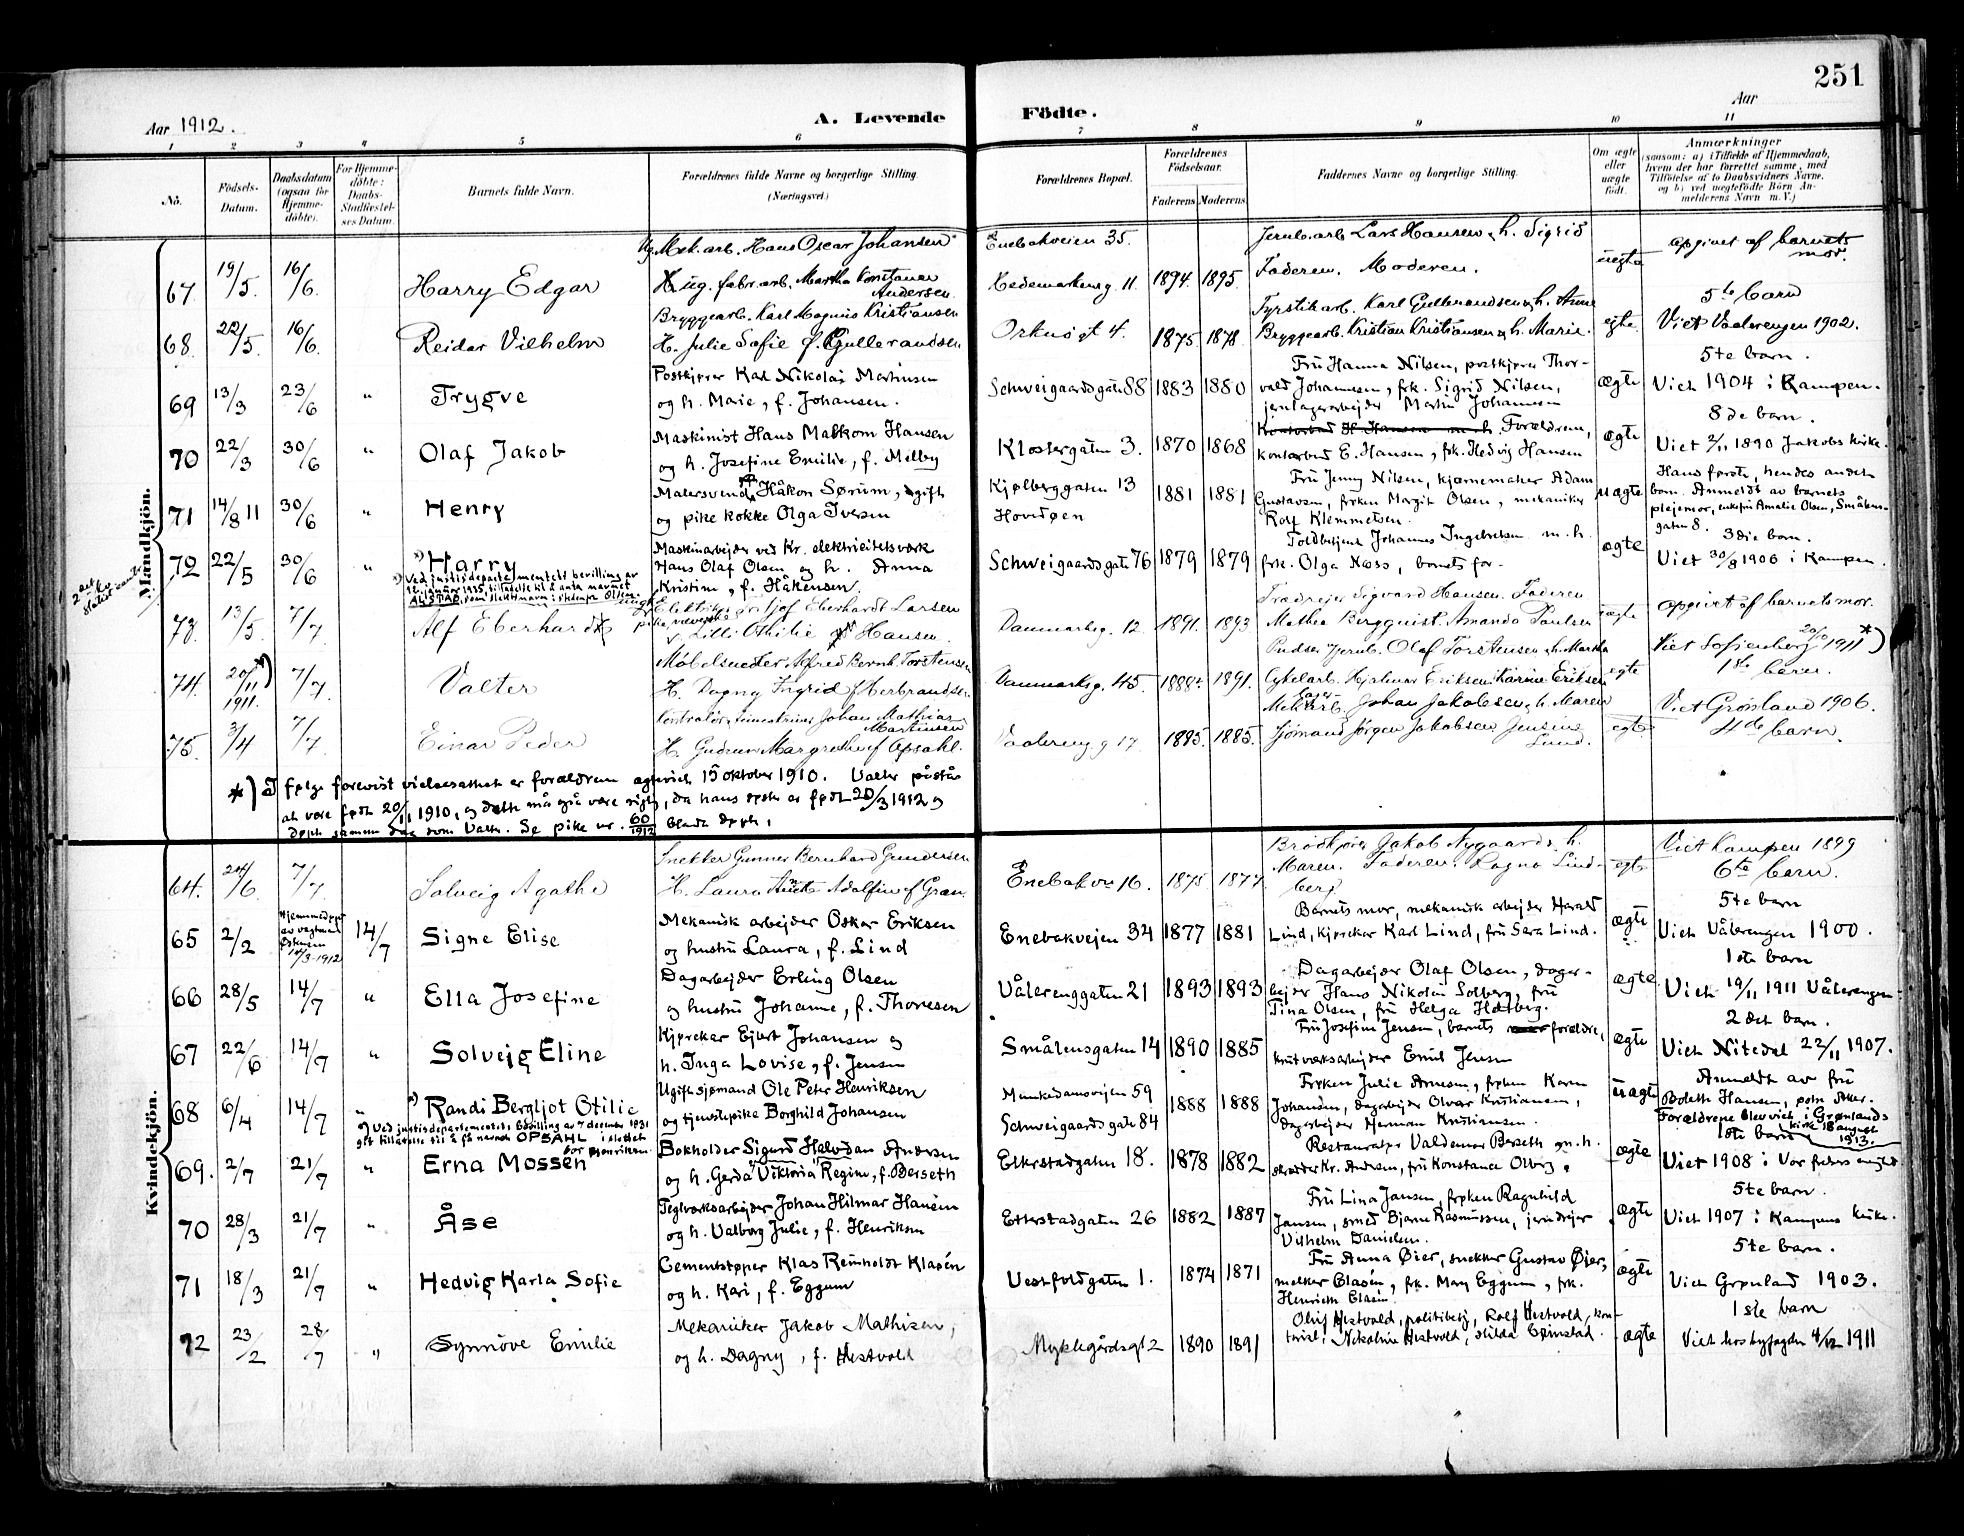 251
Aar 1912.
A. Levende Födte.
Aar
1 2 3 4 5 6 7 8 9 10 11
No.
Födsels-Datum.
Daabsdatum (ogsaa for Hjemme-döbte).
For Hjemme-döbte: Daabs-Stadfæstel-ses Datum.
Barnets fulde Navn.
Forældrenes fulde Navne og borgerlige Stilling. (Næringsvei)
Forældrenes Bopæl.
Forældrenes Födselsaar.
Faderens Moderens
Faddernes Navne og borgerlige Stilling.
Om ægte eller uægte födt.
Anmærkninger
(saasom: a) i Tilfælde af Hjemmedaab, hvem der har forrettet samme, med Tilföielse af to Daabsvidners Navne, og b) ved uægtefödte Börn An-melderens Navn m. V.)
Mandkjön.
Ug. Mek. arb. Hans Oscar Johansen Enebakveien 35. Jernb. arb Lars Hansen & h. Sigrid uegte opgivet af barnets mor.
67. 19/5. 16/6. Harry Edgar ug. fabr. arb. Martha Konstance Andersen. Hedemarkensg. 11. 1894. 1895. Faderen. Moderen.
68. 22/5. 16/6. Reidar Vilhelm Bryggearb. Karl Magnus Kristiansen
H. Julie Sofie f. Gulbrandsen Orknögt 4. 1875 1878 Fyrstikarb. Karl Gulbrandsen & h. Anne
Bryggearb. Kristian Kristiansen & h. Marie. egte. 5te barn
Viet Vaalerengen 1902.
69 13/3 23/6 " Trygve Postkjører Karl Nikolai Martinsen
og h. Marie, f. Johansen. Schweigaardsgaten 88 1883 1880 Fru Hanna Nilsen, postkjører Thor-
vald Johannesen, frk. Sigrid Nilsen,
jernlagerarbejder Martin Johannesen ægte 5te barn.
Viet 1904 i Kampen.
70 22/3 30/6 " Olaf Jakob Maskinist Hans Malkom Hansen
og h. Josefine Emilie, f. Melby Klostergaten 3. 1870 1868 Kontorbud H. Hansen m. h. Forældren,
kontorbud E. Hansen, frk. Hedvig Hansen ægte 8de barn.
Viet 2/11 1890 Jakobs kirke.
71 14/8 11 30/6 " Henry Malersvend Håkon Sørum, ugift
og pike kokke Olga Iversen Kjølberggaten 13
Hovedøen 1881 1881 Fru Jenny Nilsen, kjørnemaker Adam
Gustavsen, frøken Margit Olsen, mekaniker
Rolf Klemmetsen. uægte Hans første, hendes andet
barn. Anmeldt av barnets
plejemor, enkefru Amalie Olsen, Smålens-
gaten 8.
72 22/5 30/6 " *) Harry Maskinarbejder ved Kr. elektricitetsværk
Hans Olaf Olsen og h. Anna
Kristine, f. Håkensen. Schweigaardsgate 76 1879 1879 Toldbetjent Johannes Ingebretsen m. h.
frk. Olga Næss, barnets for- ægte 3die barn.
Viet 30/8 1906 i Kampen.
*) Ved justisdepartementets bevilling av
12. januar 1925, tilladelse til å anta navnet
ALSTAD, som slektsnavn istedenfor Olsen.
73. 13/5. 7/7 Alf Eberhard ugift Elektriker Fritjof Eberhardt Larsen
pike, væverske Lilli Othilie Hansen. Danmarksg. 12 1891. 1893 Traadrejer Sigvard Hansen. Faderen
Mathea Bergquist. Amanda Paulsen uægte opgivet af barnets mor.
74. 20/11 1911. *) 7/7 Valter Møbelsnedker Alfred Bernh. Torstensen
H. Dagny Ingrid f Herbrandsen Danmarksg. 45. 1888. 1891. Pudser Jernb. Olaf Torstensen & h. Martha
Cykelarb. Hjalmar Eriksen Karine Eriksen egte Viet Sofienberg 20/10 1911 *)
1ste barn.
75. 3/4 7/7 Einar Peder Kontrolör Johan Mathias Martinsen
H. Gudrun Margrethe f Opsahl. Vaalereng g 17. 1885. 1885. Lagerarb. Johan Jakobsen & h. Maren
Sjømand Jørgen Jakobsen Jensine
Lund. egte Viet Grønland 1906.
4de barn.
*) I følge forevist vielsesattest er forældrene egteviet 15 oktober 1910. Valter påstås
at være født 20/11 1910, og dette må også være rigtig, da hans søster er født 20/3 1912 og
døpt samme dag som Valter. Se pike nr. 60/1912 blandt døpte.
Kvindekjön.
64. 24/6. 7/7 Solveig Agathe Snekker Gunner Bernhard Gundersen
H. Laura Adolfine f Gran Enebakvn 16. 1875 1877 Brödkjører Jakob Nygaard & h.
Maren. Faderen. Ragna Lind-
berg egte Viet Kampen 1899
6te barn.
65 2/2 Hjemmedøpt av 10/3-1912 14/7 Signe Elise Mekanisk arbejder Oskar Eriksen
og hustru Laura, f. Lind Enebakvejen 34 1877 1881 Barnets mor, mekanisk arbejder Harald
Lind, kjørekar Karl Lind, fru Sara Lind. ægte 5te barn
Viet Vålerengen 1900.
66 28/5 14/7 " Ella Josefine Dagarbejder Erling Olsen
og hustru Johanne, f. Thoresen Vålerenggaten 21 1893 1893 Dagarbejder Olaf Olsen, dagar-
bejder Hans Nikolai Solberg, fru
Tina Olsen, fru Helga Hætberg. ægte 1ste barn
Viet 19/11 1911 Vålerengen
67 22/6 14/7 " Solvejg Eline Kjørekar Ejlert Johansen og
h. Inga Lovise, f. Jensen Smålensgaten 14 1890 1885 Fru Josefine Jensen, barnets forældre,
krutværksarbejder Emil Jensen ægte 2det barn.
Viet Nitedal 22/11 1907.
68 6/4 14/7 " *) Randi Bergljot Otilie Ugift sjømand Ole Peter Henriksen
og tjenestepike Borghild Johansen Munkedamsvejen 59
Schweigaardsgate 84 1888 1888 Frøken Julie Arnesen, frøken Karen
Johansen, dagarbejder Olvar Kristiansen,
dagarbejder Herman Kristiansen. uægte Anmeldt av fru
Boleth Hansen,
Forældrene blev viet i Grønlands
kirke 18 august 1913.
*) Ved justisdepartementets bevilling av 7 december 1931
gitt tilladelse til å få navnet OPSAHL i stedet
for Henriksen.
69. 2/7 21/7 " Erna Mossen Bokholder Sigurd Halvdan Andersen
og h. Gerda Viktoria Regine, f. Berseth Etterstadgaten 18. 1878 1882 Restauratør Valdemar Berseth m. h.
skrædder Kr. Andersen, fru Konstance Olberg. ægte 1ste barn
Viet 1908 i Vor frelsers
70 28/3 21/7 " Åse Teglværksarbejder Johan Hilmar Hansen
og h. Valborg Julie, f. Henriksen Etterstadgaten 26 1882 1887 Fru Lina Jansen, frøken Ragnhild
Jansen, smed Bjarne Rasmussen, jerndrejer
Vilhelm Danielsen. ægte 5te barn.
Viet 1907 i Kampens kirke.
71 18/3 21/7 " Hedvig Karla Sofie Cementstøper Klas Reinholdt Klasén
og h. Kari, f. Eggum Vestfoldgaten 1. 1874 1871 Fru Anna Øier, snekker Gustav Øier,
melker Clasén, frk. Mary Eggum, frk.
Henriette Clasén. ægte 5te barn.
Viet Grønland 1903.
72 23/2 28/7 " Synnöve Emilie Mekaniker Jakob Mathisen,
og h. Dagny, f. Hestvold Myklegårdsgt 2 1890 1891 Oluf Hestvold, politibetj, Rolf Hestvold, kon-
torist, Nikoline Hestvold, Hilda Grimstad. ægte 1ste barn
Viet hos byfogden 4/12 1911